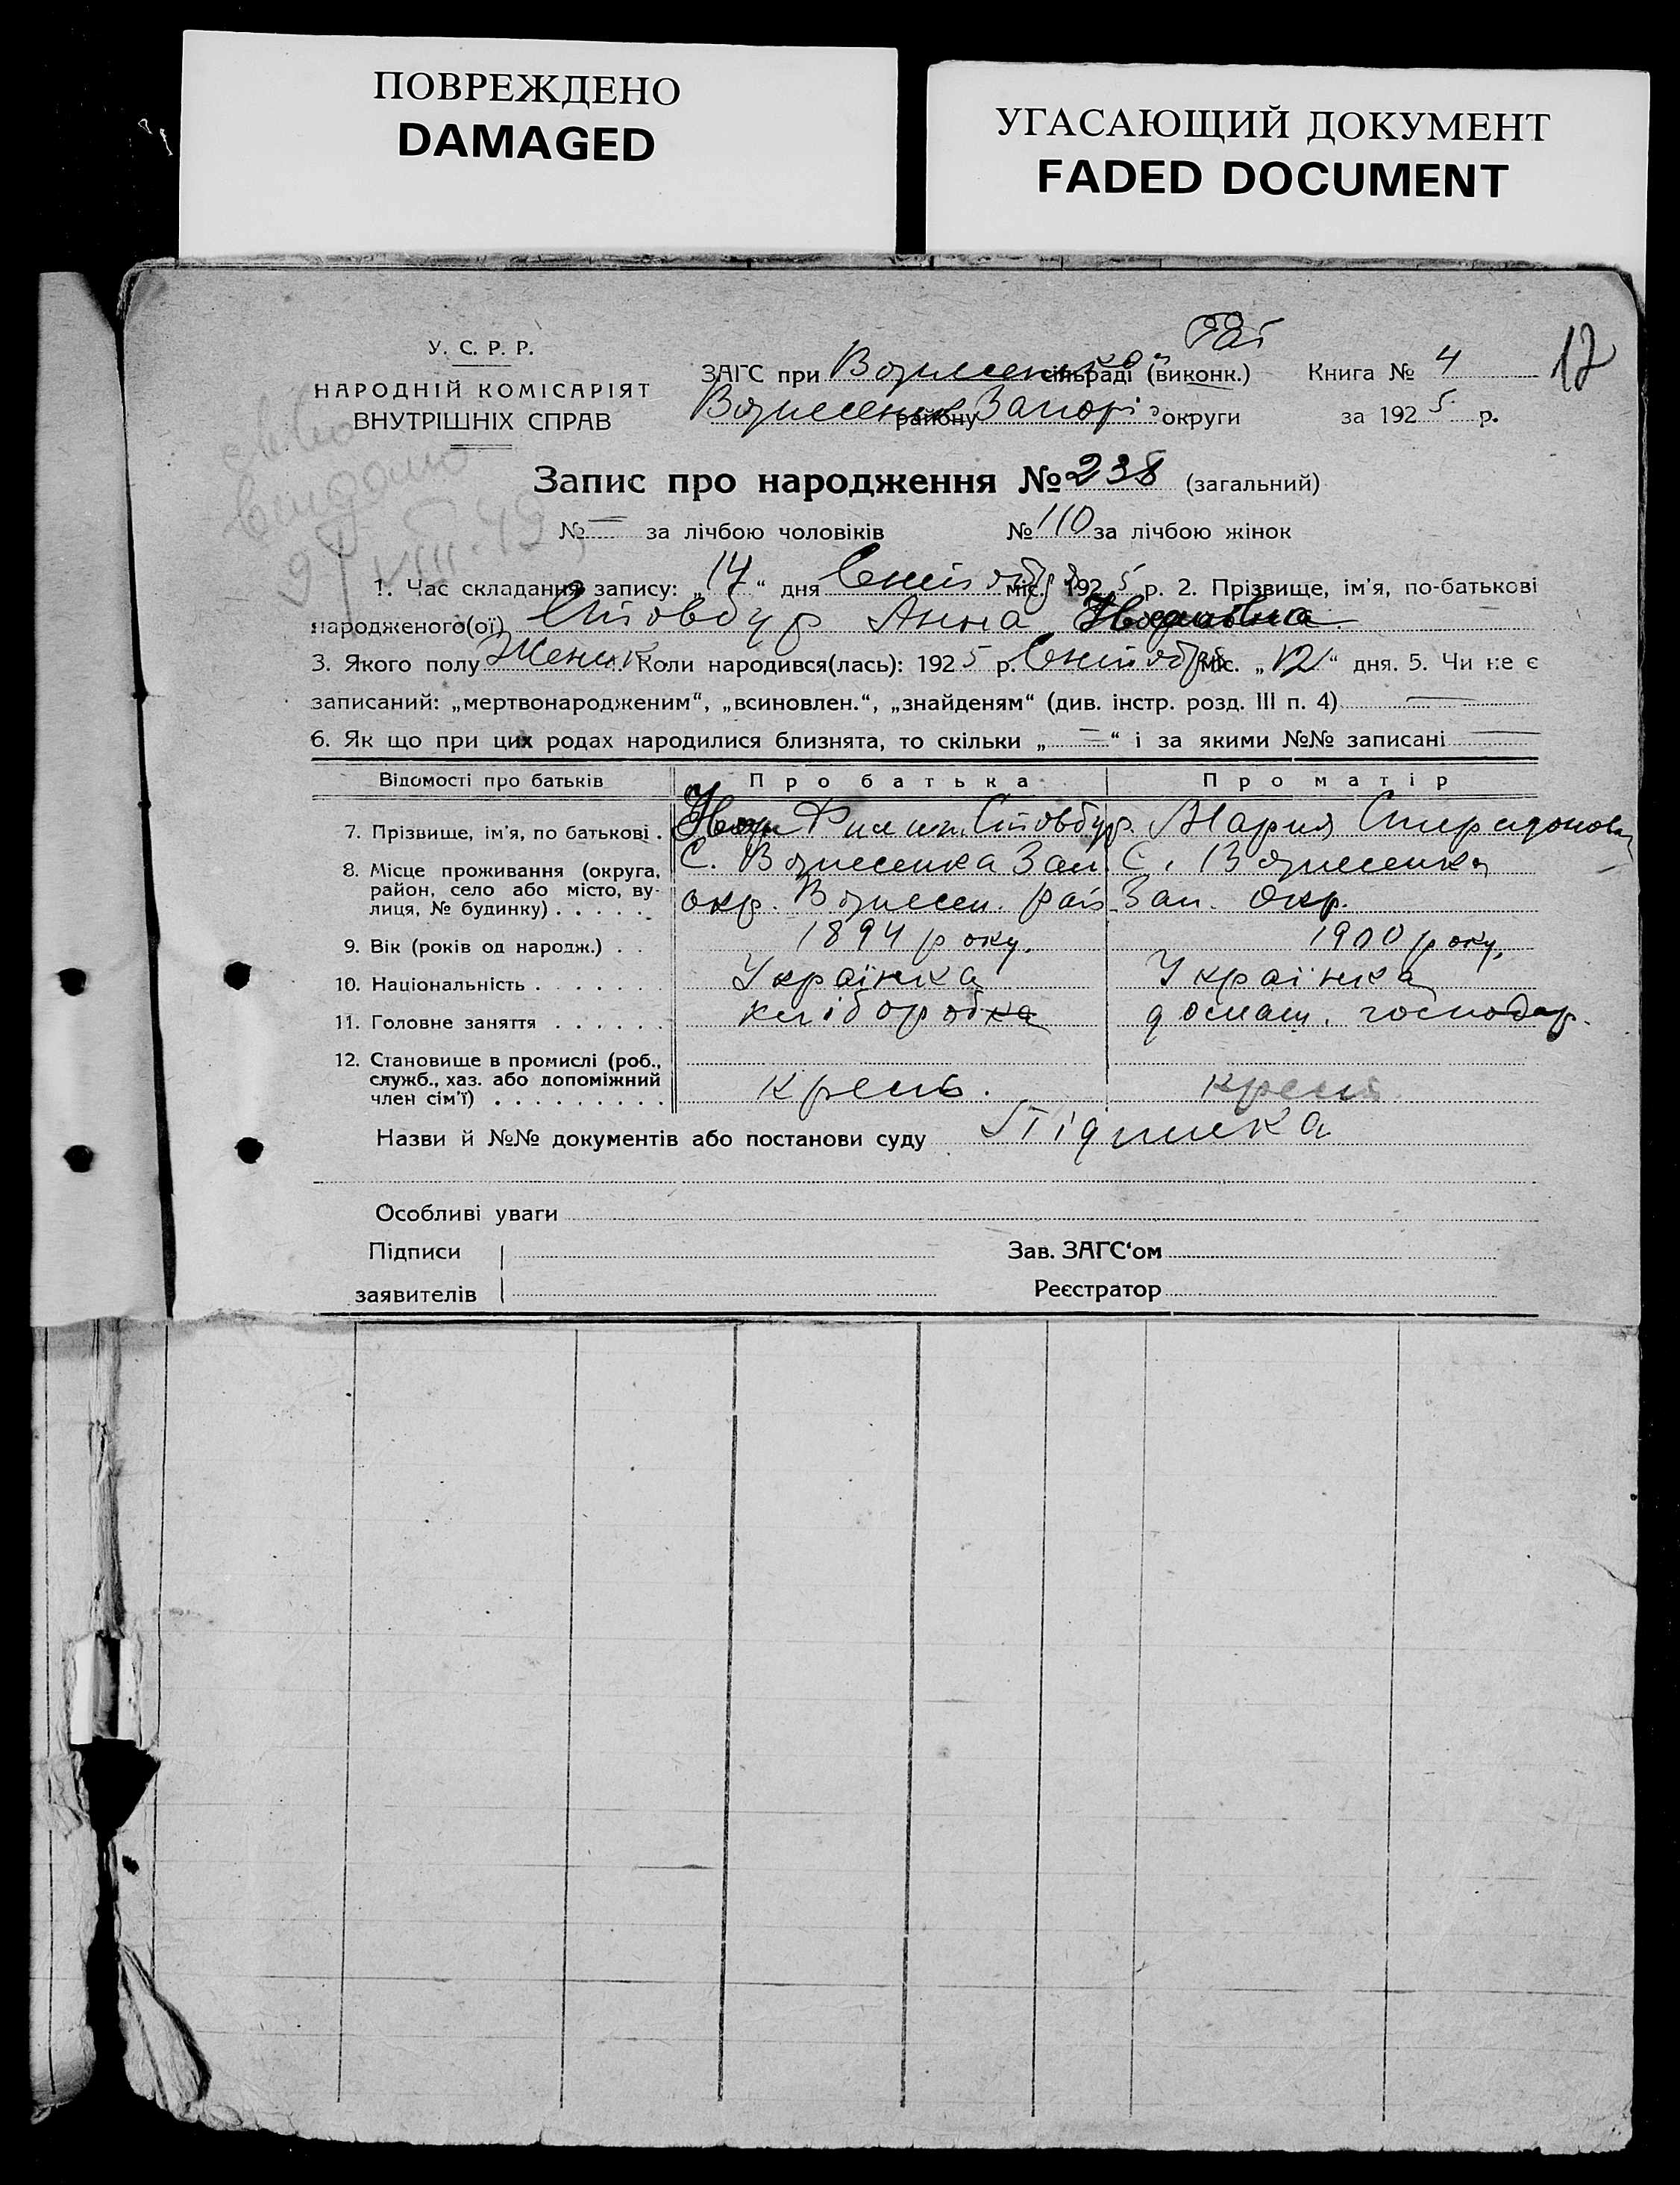 ПОВРЕЖДЕНО
DAMAGED
УГАСАЮЩИЙ ДОКУМЕНТ
FADED DOCUMENT
У. С. Р. Р.
НАРОДНІЙ КОМІСАРІЯТ
ВНУТРІШНІХ СПРАВ
ЗАГС при сільраді (виконк.)
району Запоріз округи
Книга № 4
за 1925 р.
17
Запис про народження № 238 (загальний)
№ — за лічбою чоловіків № 110 за лічбою жінок
1. Час складання запису: „14“ дня Сентября міс. 1925 р. 2. Прізвище, ім'я, по-батькові
народженого(ої) Стовбур Анна
3. Якого полу Женск. Коли народився(лась): 1925 р. Сентября міс. „12“ дня. 5. Чи не є
записаний: „мертвонародженим“, „всиновлен.“, „знайденям“ (див. інстр. розд. III п. 4) —
6. Як що при цих родах народилися близнята, то скільки „—“ і за якими №№ записані —
Відомості про батьків Про батька Про матір
7. Прізвище, ім'я, по батькові . Филип. Стовбур. Мария Спиридонов
8. Місце проживання (округа, район, село або місто, вулиця, № будинку) . . . . .
С. Вознесенка Зап. С. Вознесенка
окр. Вознесен. рай Зап. окр.
9. Вік (років од народж.) . . 1894 року. 1900 року,
10. Національність . . . . . . . Українка Українка
11. Головне заняття . . . . . . хліборобка домаш. господар.
12. Становище в промислі (роб., служб., хаз. або допоміжний член сім'ї) . . . . . . . . .
крест. крест
Назви й №№ документів або постанови суду Підписка
Особливі уваги
Підписи Зав. ЗАГС'ом
заявителів Реєстратор